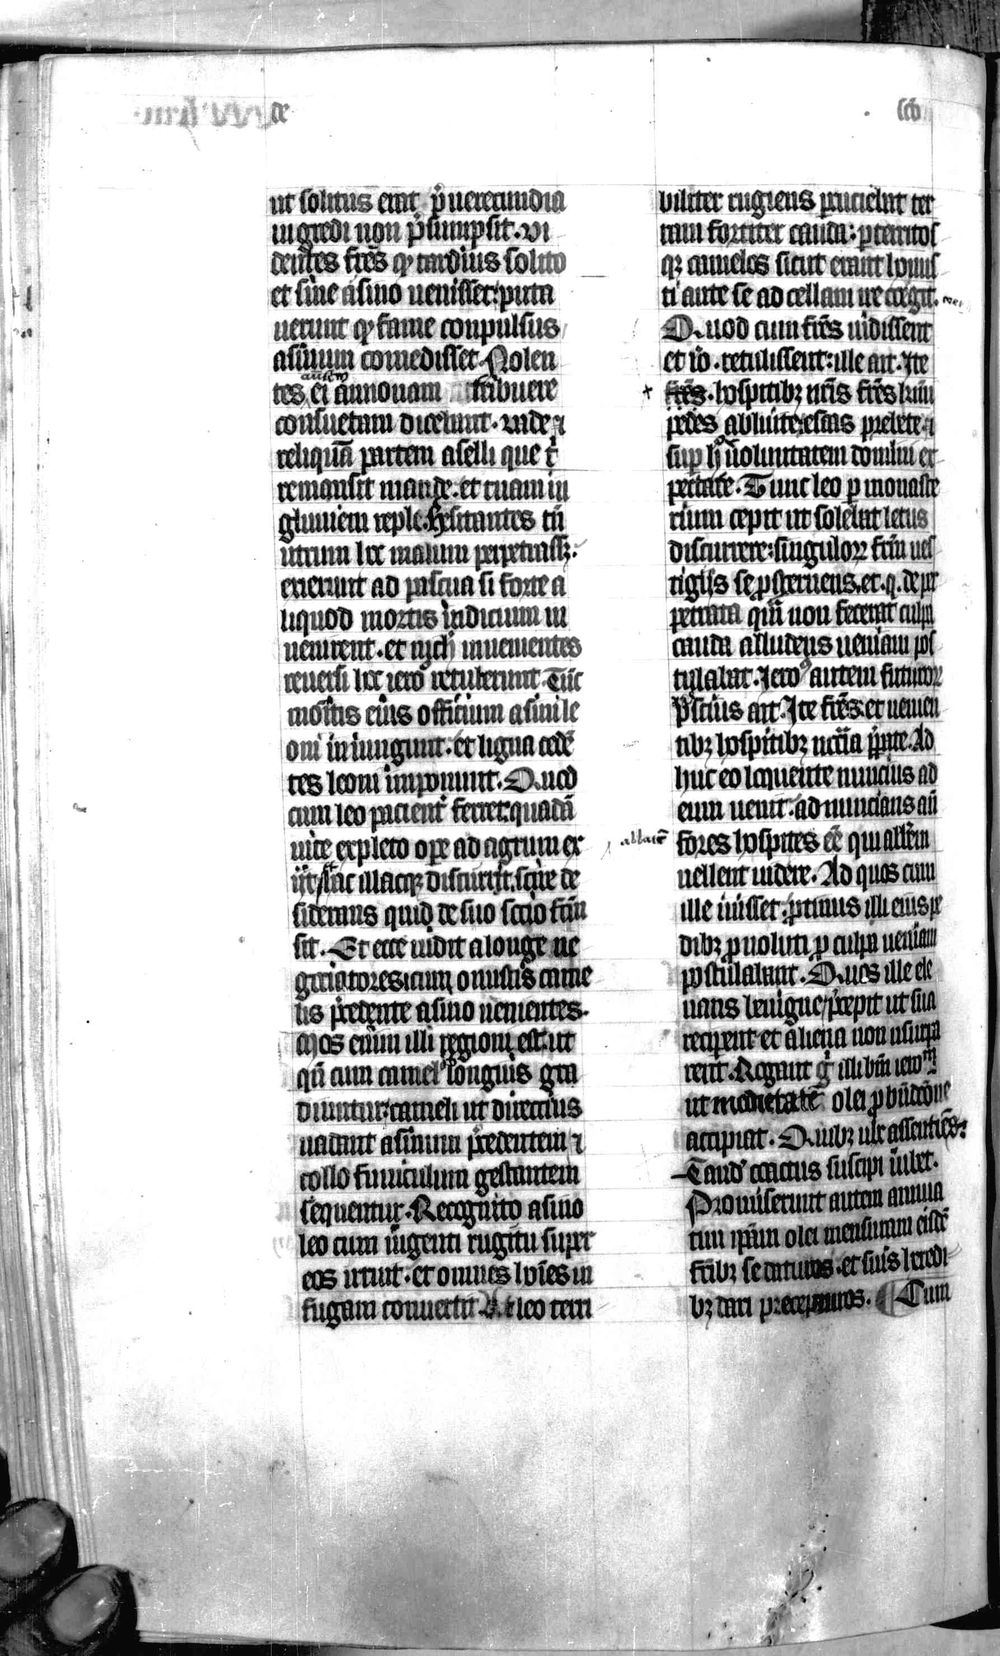 de
scō
ut solitus erat p̄ uerecundia
ingredi non p̄sumpsit. vi
dentes fr̄es qꝫ tardius solito
et sine asino uenisset: puta
uerunt qꝫ fame conpulsus
asinum comedisset. Nolen
tes ei annonam tribuere
autem
consuetam dicebant. vade ⁊
reliquā partem aselli que t͛
remansit mande. et tuam in
gluuiem reple. hesitantes tn̄
utrum hec malum perpetrass;.
exierunt ad pascua si forte a
liquod mortis indicium in
uenirent. et nich̄ inuenientes
reuersi hec iero᷒ retulerunt. Tūc
monitis eius officium asini le
oni iniungunt. et ligna cedē
tes leoni imponunt. Quod
cum leo pacient͛ ferret: quadā
uice expleto ope ad agrum ex
iit ⁊ hac illacqꝫ discurrit, scire de
siderans quid de suo socio factū
sit. Et ecce uidit a longe ne
gociatores cum onustis came
lis p̄cedente asino uenientes.
Mos enim illi regioni est. ut
qn̄ cum camel᷒ longius gra
diuntur: cameli ut directius
uadant asinum p̄cedentem ⁊
collo funiculum gestantem
sequentur. Recognito asino
leo cum ingenti rugitu super
eos irruit. et omnes hōies in
fugam conuertit leo terri
biliter rugiens percuciebat ter
ram fortiter cauda: perterritos
qꝫ camelos sicut erant honus
ti ante se ad cellam ire coegit.
Quod cum fr̄es uidissent
et iō. retulissent: ille ait. Ite
fr̄es. hospitibꝫ nr̄is fr̄es kmi
pedes abluite: escas prebete ⁊
sup h̊ uoluntatem domini ex
pectate. Tunc leo p monaste
rium cepit ut solebat letus
discurrere: singulorꝫ fr̄m ues
tigiis se psternens. et. q. de per
petrata qm̄ non fecerat culpa
cauda alludens ueniam pos
tulabat. Iero᷒ autem futurorꝫ
p̄scius ait. Ite fr̄es. et uenien
tibꝫ hospitibꝫ nccīa ppate. Ad
huc eo loquente nuncius ad
eum uenit. ad nuncians an̄
fores hospites eē qui abb̄em
abbatē
uellent uidere. Ad quos cum
ille iuisset: ptinus illi eius pe
dibꝫ puoluti p culpa ueniam
postulabant. Quos ille ele
uans benigne p̄cepit ut sua
reciperent et aliena non usurpa
rent. Rogant g̊ illi bm̄ iero᷒
ut medietatē olei p bn̄dc̄one
accipiat. Quibꝫ uix assentiens
Tand᷒ coactus suscipi iubet.
Promiserunt autem annua
tim ipam olei mensuram eisdē
fr̄ibꝫ se daturos. et suis heredi
bꝫ dari precepturos. Cum